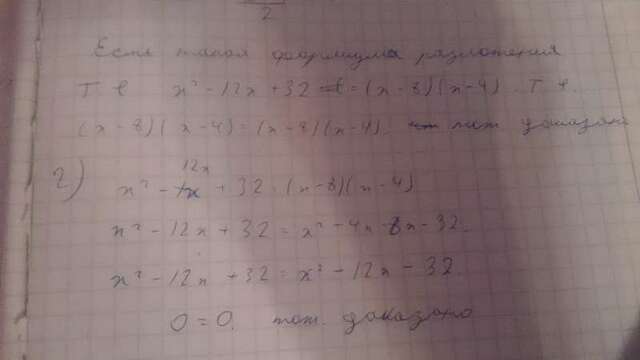 2
Есть такая формула разложения
Т. е x² - 12x + 32 = (x - 8)(x - 4). Т. е.
(x - 8)(x - 4) = (x - 8)(x - 4). тот доказано
2)
12x
x² - + 32 = (x - 8)(x - 4)
x² - 12x + 32 = x² - 4x - 8x - 32.
x² - 12x + 32 = x² - 12x - 32.
0 = 0. тот. доказано